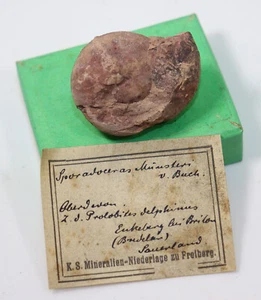 Sporadoceras Münsteri
v. Buch.
Oberdevon.
Z. d. Prolobites delphinus
Enkeberg bei Brilon
(Bredelar)
Sauerland
K. S. Mineralien-Niederlage zu Freiberg.